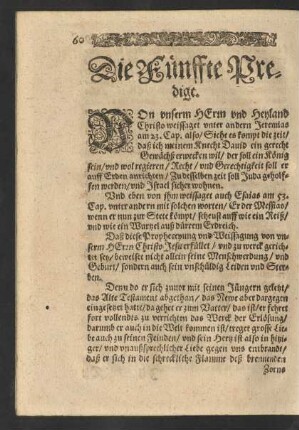 60
Die Fünffte Pre-
digt.
VOn vnserm HErrn vnd Heyland
Christo weissaget vnter andern Jeremias
am 23. Cap. also/ Siehe es kompt die zeit/
daß ich meinem Knecht Dauid ein gerecht
Gewächß erwecken will/ der soll ein König
sein/ vnd wol regieren/ Recht/ vnd Gerechtigkeit soll er
auff Erden anrichten/ Zu desselben zeit soll Juda geholf-
fen werden/ vnd Israel sicher wohnen.
Vnd eben von jhm weissaget auch Esaias am 53.
Cap. vnter andern mit solchen worten/ Er der Messias/
wenn er nun zur Stete kömpt/ scheust auff wie ein Reiß/
vnd wie ein Wurtzel auß dürrem Erdreich.
Daß diese Propheceyung vnd Weissagung von vn-
serm HErrn Christo Jesu erfüllet/ vnd zu werck gerich-
tet sey/ beweiset nicht allein seine Menschwerdung/ vnd
Geburt/ sondern auch sein vnschüldig Leiden vnd Ster-
ben.
Denn do er sich zuuor mit seinen Jüngern geletzt/
das Alte Testament abgethan/ das Newe aber dargegen
eingesetzet hatte/ da gehet er zum Vatter/ das ist/ er fehret
fort vollendts zu verrichten das Werck der Erlösung/
darumb er auch in die Welt kommen ist/ treget grosse Lie-
be auch zu seinen Feinden/ vnd sein Hertz ist also in hitzi-
ger/ vnd vnaußsprechlicher Liebe gegen vns entbrandt/
daß er sich in die schreckliche Flamme deß brennenden
Zorns